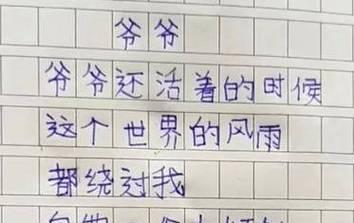 爷爷
爷爷还活着的时候
这个世界的风雨
都绕过我